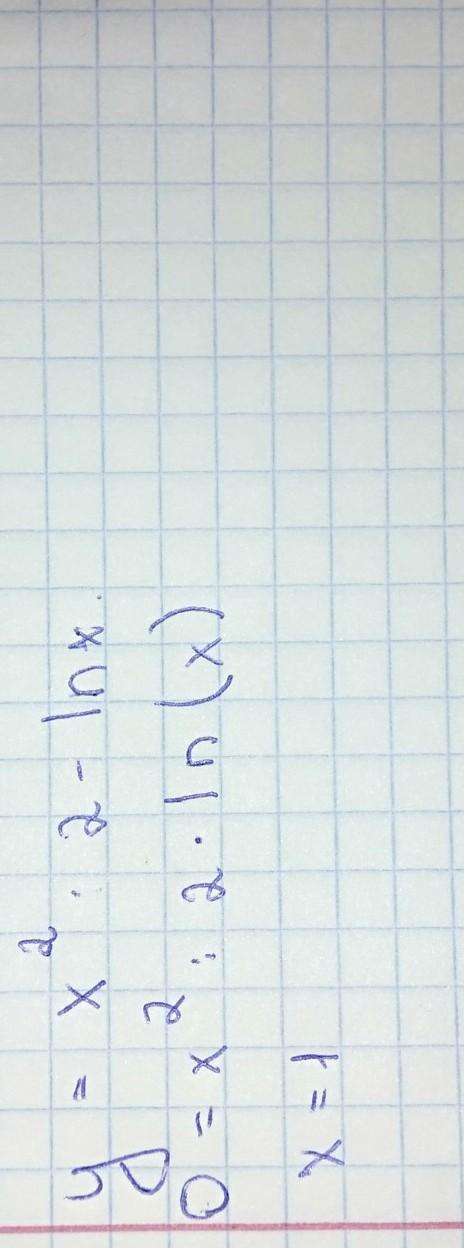 y = x² : 2 - ln x.
0 = x² : 2 · ln(x)
x = 1